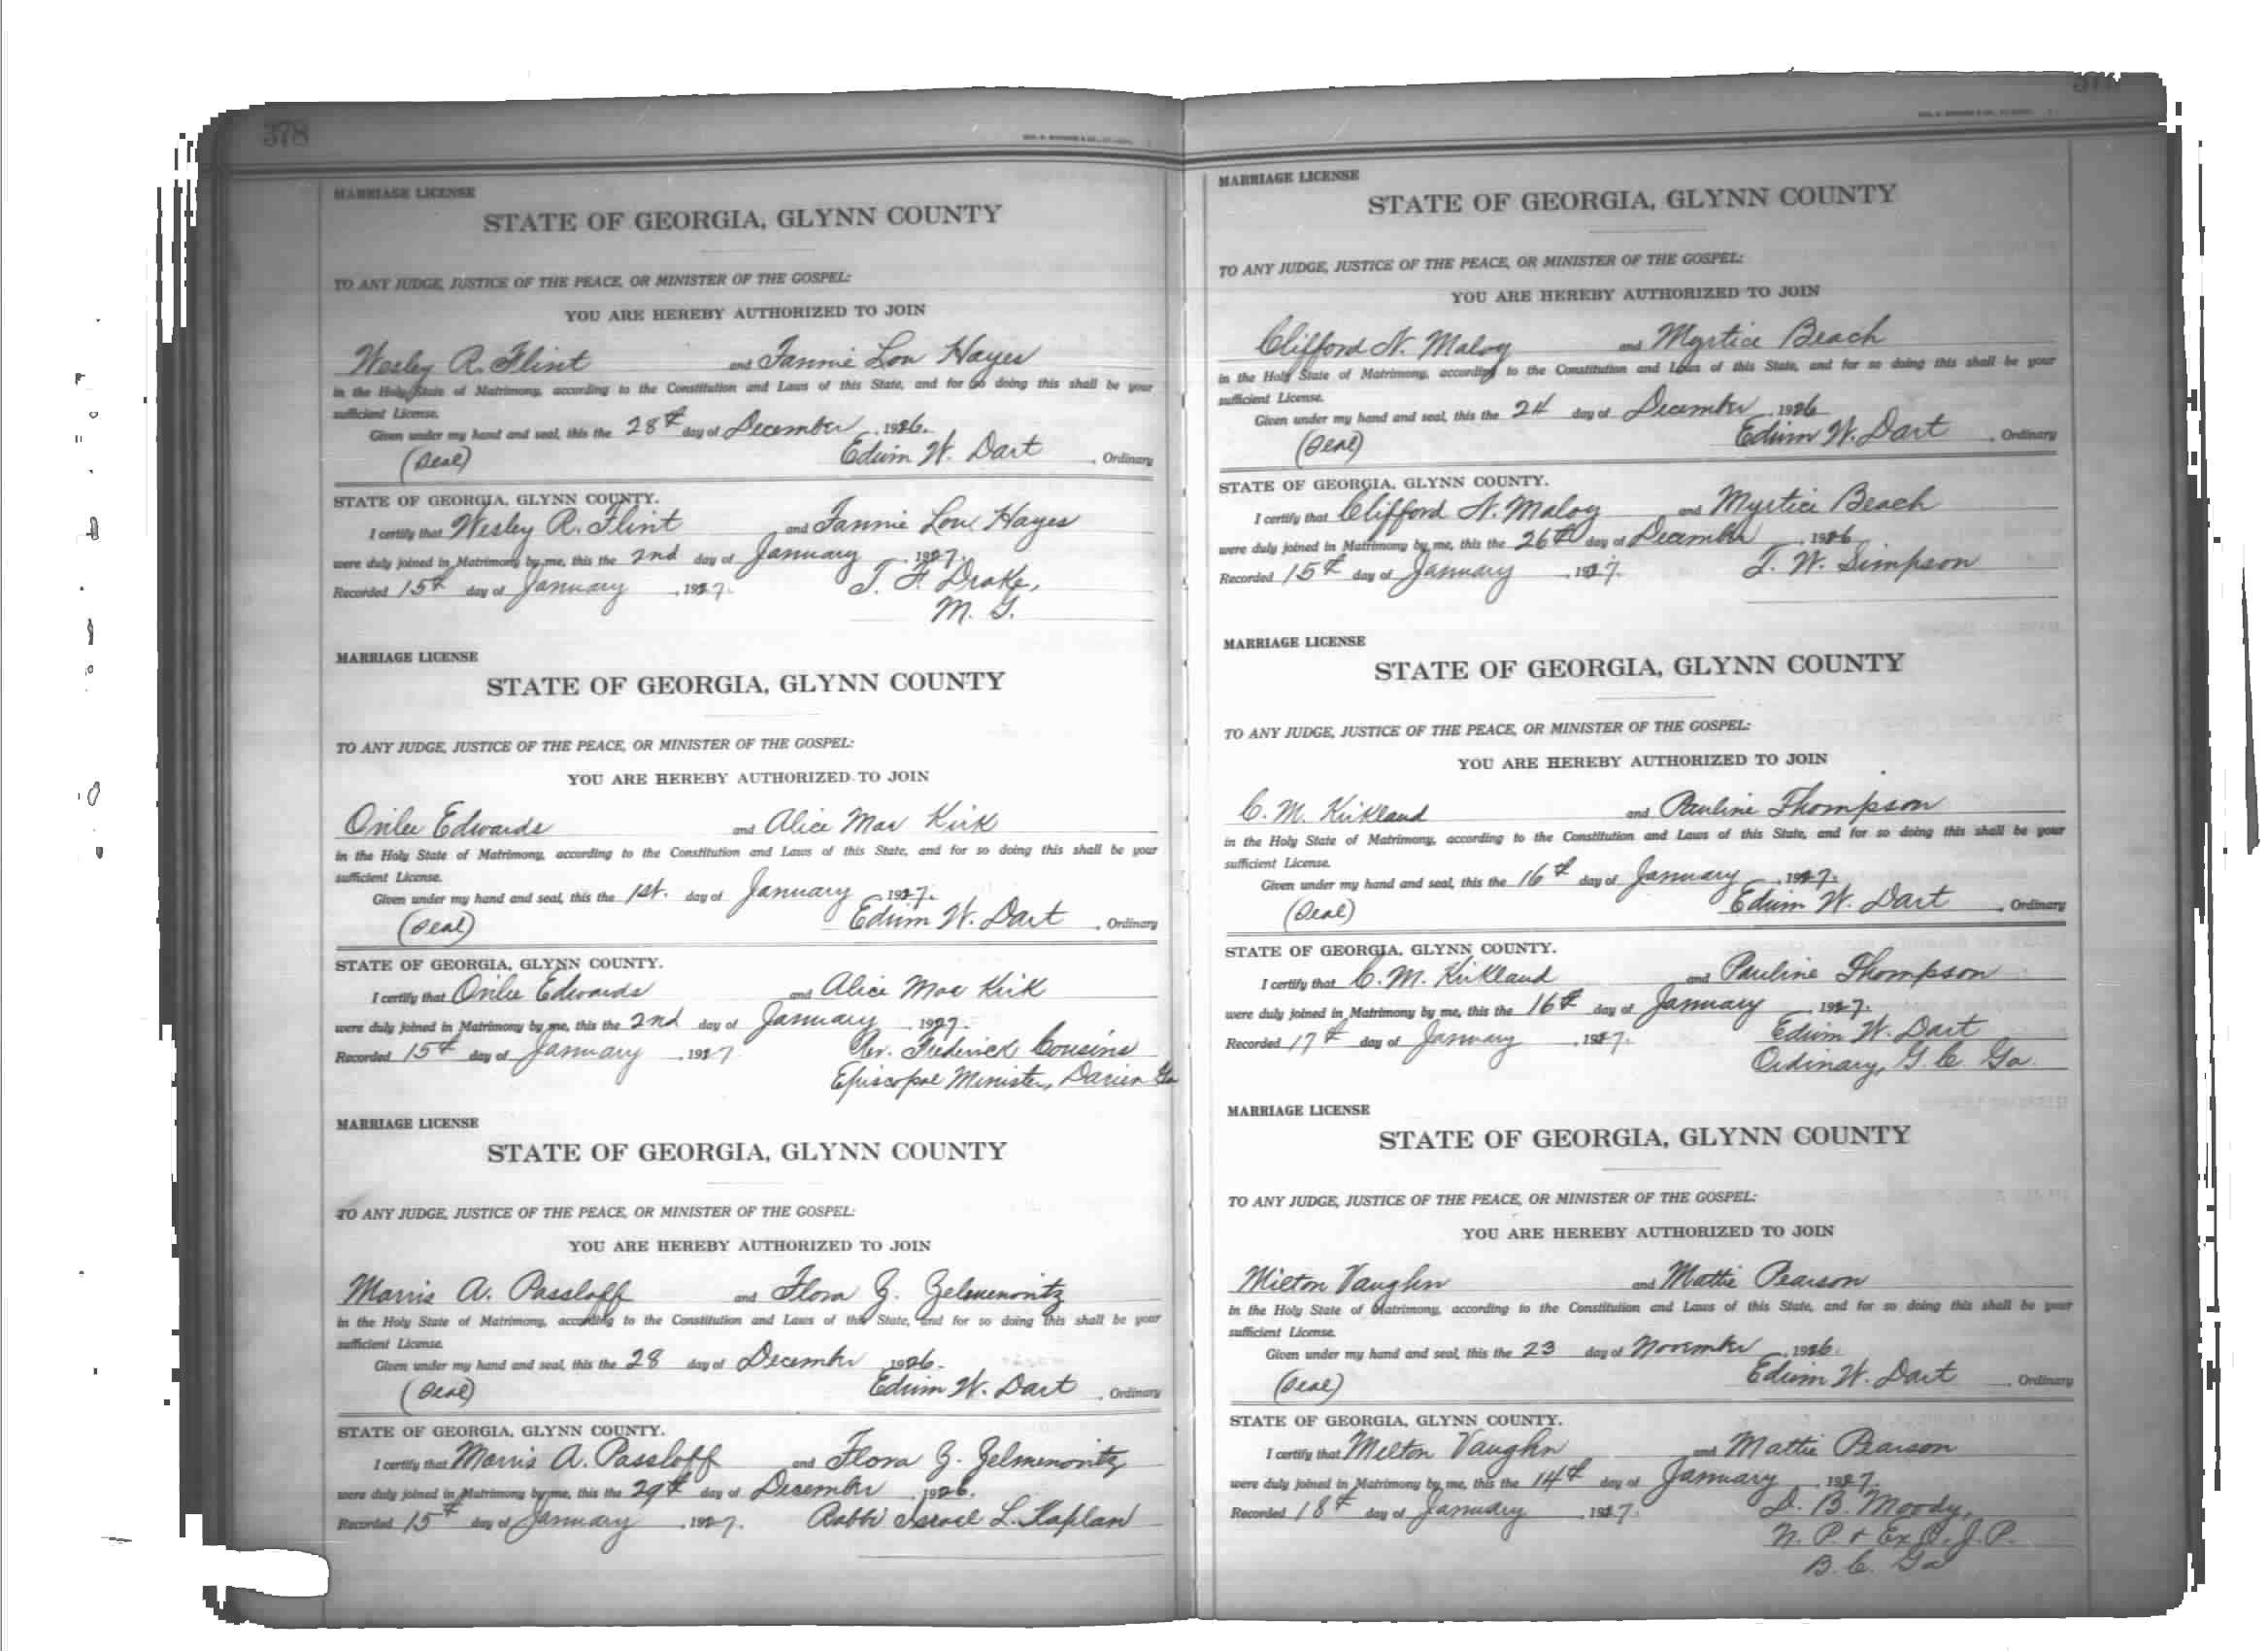 378
MARRIAGE LICENSE
STATE OF GEORGIA, GLYNN COUNTY
TO ANY JUDGE, JUSTICE OF THE PEACE, OR MINISTER OF THE GOSPEL:
YOU ARE HEREBY AUTHORIZED TO JOIN
Wesley R. Flint and Fannie Lou Hayes
in the Holy State of Matrimony, according to the Constitution and Laws of this State, and for so doing this shall be your
sufficient License.
Given under my hand and seal, this the 28th day of December, 1926.
(Seal) Edwin W. Dart, Ordinary
STATE OF GEORGIA, GLYNN COUNTY.
I certify that Wesley R. Flint and Fannie Lou Hayes
were duly joined in Matrimony by me, this the 2nd day of January, 1927.
Recorded 15th day of January, 1927. T. F. Drake,
M. G.
MARRIAGE LICENSE
STATE OF GEORGIA, GLYNN COUNTY
TO ANY JUDGE, JUSTICE OF THE PEACE, OR MINISTER OF THE GOSPEL:
YOU ARE HEREBY AUTHORIZED TO JOIN
Orilee Edwards and Alice Mae Kirk
in the Holy State of Matrimony, according to the Constitution and Laws of this State, and for so doing this shall be your
sufficient License.
Given under my hand and seal, this the 1st. day of January, 1927.
(Seal) Edwin W. Dart, Ordinary
STATE OF GEORGIA, GLYNN COUNTY.
I certify that Orilee Edwards and Alice Mae Kirk
were duly joined in Matrimony by me, this the 2nd day of January, 1927.
Recorded 15th day of January, 1927 Rev. Frederick Cousins
Episcopal Minister, Darien Ga
MARRIAGE LICENSE
STATE OF GEORGIA, GLYNN COUNTY
TO ANY JUDGE, JUSTICE OF THE PEACE, OR MINISTER OF THE GOSPEL:
YOU ARE HEREBY AUTHORIZED TO JOIN
Morris A. Passloff and Flora G. Zelmenovitz
in the Holy State of Matrimony, according to the Constitution and Laws of this State, and for so doing this shall be your
sufficient License.
Given under my hand and seal, this the 28 day of December, 1926.
(Seal) Edwin W. Dart, Ordinary
STATE OF GEORGIA, GLYNN COUNTY.
I certify that Morris A. Passloff and Flora G. Zelmenovitz
were duly joined in Matrimony by me, this the 29th day of December, 1926.
Recorded 15th day of January, 1927. Rabbi Israel L. Kaplan
MARRIAGE LICENSE
STATE OF GEORGIA, GLYNN COUNTY
TO ANY JUDGE, JUSTICE OF THE PEACE, OR MINISTER OF THE GOSPEL:
YOU ARE HEREBY AUTHORIZED TO JOIN
Clifford N. Maloy and Myrtice Beach
in the Holy State of Matrimony, according to the Constitution and Laws of this State, and for so doing this shall be your
sufficient License.
Given under my hand and seal, this the 24 day of December, 1926
(Seal) Edwin W. Dart, Ordinary
STATE OF GEORGIA, GLYNN COUNTY.
I certify that Clifford N. Maloy and Myrtice Beach
were duly joined in Matrimony by me, this the 26th day of December, 1926
Recorded 15th day of January, 1927. T. W. Simpson
MARRIAGE LICENSE
STATE OF GEORGIA, GLYNN COUNTY
TO ANY JUDGE, JUSTICE OF THE PEACE, OR MINISTER OF THE GOSPEL:
YOU ARE HEREBY AUTHORIZED TO JOIN
C. M. Kirkland and Pauline Thompson
in the Holy State of Matrimony, according to the Constitution and Laws of this State, and for so doing this shall be your
sufficient License.
Given under my hand and seal, this the 16th day of January, 1927.
(Seal) Edwin W. Dart, Ordinary
STATE OF GEORGIA, GLYNN COUNTY.
I certify that C. M. Kirkland and Pauline Thompson
were duly joined in Matrimony by me, this the 16th day of January, 1927.
Recorded 17th day of January, 1927. Edwin W. Dart
Ordinary, G. C. Ga.
MARRIAGE LICENSE
STATE OF GEORGIA, GLYNN COUNTY
TO ANY JUDGE, JUSTICE OF THE PEACE, OR MINISTER OF THE GOSPEL:
YOU ARE HEREBY AUTHORIZED TO JOIN
Milton Vaughn and Mattie Pearson
in the Holy State of Matrimony, according to the Constitution and Laws of this State, and for so doing this shall be your
sufficient License.
Given under my hand and seal, this the 23 day of November, 1926.
(Seal) Edwin W. Dart, Ordinary
STATE OF GEORGIA, GLYNN COUNTY.
I certify that Milton Vaughn and Mattie Pearson
were duly joined in Matrimony by me, this the 14th day of January, 1927.
Recorded 18th day of January, 1927. D. B. Moody,
N. P. & Ex. O. J. P.
B. C. Ga